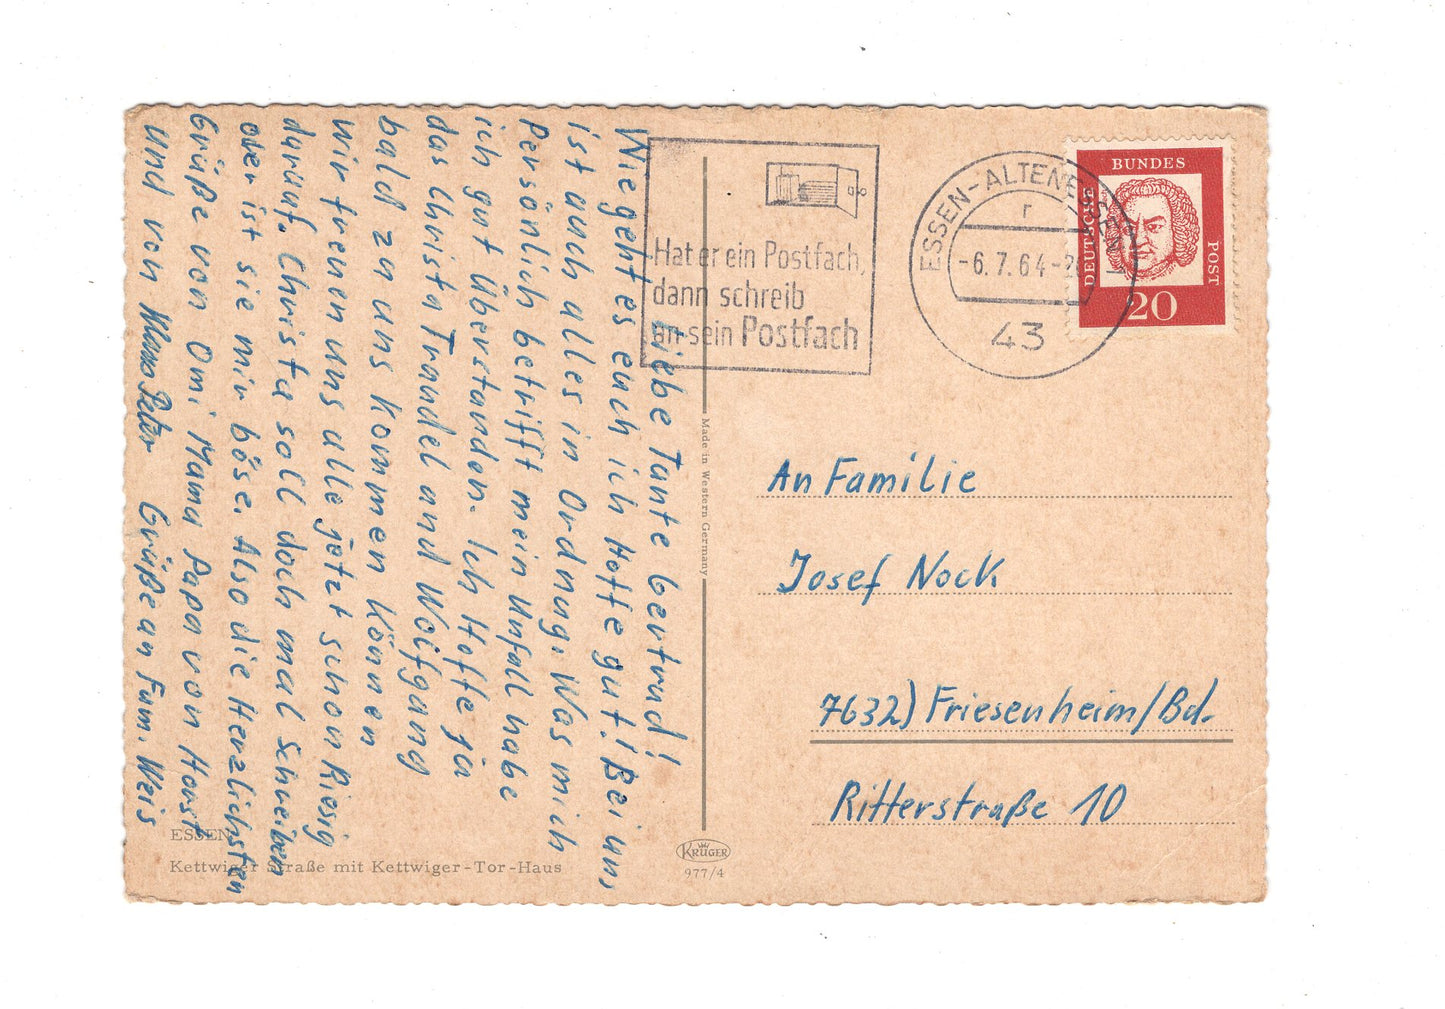 Liebe Tante Gertrud!
Wie geht es euch ich Hoffe gut! Bei uns
ist auch alles in Ordnung. Was mich
Persönlich betrifft mein Unfall habe
ich gut Überstanden. Ich Hoffe ja
das Christa Traudel und Wolfgang
bald zu uns kommen können
Wir freuen uns alle jetzt schon Riesig
darauf. Christa soll doch mal Schreiben
oder ist sie mir böse. Also die Herzlichsten
Grüße von Omi Mama Papa von Horst
und von Klaus Peter Grüße an Fam. Weis
ESSEN
Kettwiger Straße mit Kettwiger-Tor-Haus
Made in Western Germany
KRÜGER
977/4
Hat er ein Postfach,
dann schreib
an sein Postfach
ESSEN-ALTENESSEN 1
r
-6.7.64-
43
DEUTSCHE
BUNDES
POST
20
An Familie
Josef Nock
7632) Friesenheim/Bd.
Ritterstraße 10